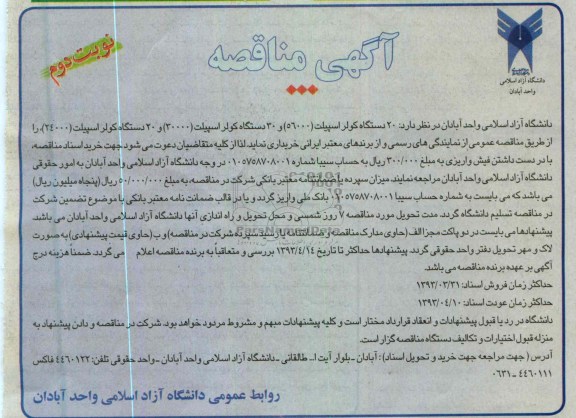 نوبت دوم
آگهی مناقصه
دانشگاه آزاد اسلامی
واحد آبادان
دانشگاه آزاد اسلامی واحد آبادان در نظر دارد: ۲۰ دستگاه کولر اسپیلت (۵۶۰۰۰) و ۳۰ دستگاه کولر اسپیلت (۳۰۰۰۰) و ۲۰ دستگاه کولر اسپیلت (۲۴۰۰۰) را
از طریق مناقصه عمومی از نمایندگی های رسمی و از برندهای معتبر ایرانی خریداری نماید. لذا از کلیه متقاضیان دعوت می شود جهت خرید اسناد مناقصه،
با در دست داشتن فیش واریزی به مبلغ ۳۰۰/۰۰۰ ریال به حساب سیبا شماره ۰۱۰۵۷۵۸۷۰۸۰۰۱ در وجه دانشگاه آزاد اسلامی واحد آبادان به امور حقوقی
دانشگاه آزاد اسلامی واحد آبادان مراجعه نمایند. میزان سپرده یا ضمانتنامه معتبر بانکی شرکت در مناقصه، به مبلغ ۵۰/۰۰۰/۰۰۰ ریال (پنجاه میلیون ریال)
می باشد که می بایست به شماره حساب سیبا ۰۱۰۵۷۵۸۷۰۸۰۰۱ بانک ملی واریز گردد و یا در قالب ضمانت نامه معتبر بانکی با موضوع تضمین شرکت
در مناقصه تسلیم دانشگاه گردد. مدت تحویل مورد مناقصه ۷ روز شمسی و محل تحویل و راه اندازی آنها دانشگاه آزاد اسلامی واحد آبادان می باشد.
پیشنهادها می بایست در دو پاکت مجزا الف (حاوی مدارک مناقصه و ضمانتنامه یا رسید سپرده شرکت در مناقصه) و ب (حاوی قیمت پیشنهادی) به صورت
لاک و مهر تحویل دفتر واحد حقوقی گردد. پیشنهادها حداکثر تا تاریخ ۱۳۹۳/۴/۱۴ بررسی و متعاقباً به برنده مناقصه اعلام می گردد. ضمناً هزینه درج
آگهی بر عهده برنده مناقصه می باشد.
حداکثر زمان فروش اسناد: ۱۳۹۳/۰۳/۳۱
حداکثر زمان عودت اسناد: ۱۳۹۳/۰۴/۱۰
دانشگاه در رد یا قبول پیشنهادات و انعقاد قرارداد مختار است و کلیه پیشنهادات مبهم و مشروط مردود خواهد بود. شرکت در مناقصه و دادن پیشنهاد به
منزله قبول اختیارات و تکالیف دستگاه مناقصه گزار است.
آدرس (جهت مراجعه جهت خرید و تحویل اسناد): آبادان ـ بلوار آیت ا... طالقانی ـ دانشگاه آزاد اسلامی واحد آبادان ـ واحد حقوقی تلفن: ۴۴۶۰۱۲۲ فاکس
۴۴۶۰۱۱۱ ـ ۰۶۳۱
روابط عمومی دانشگاه آزاد اسلامی واحد آبادان